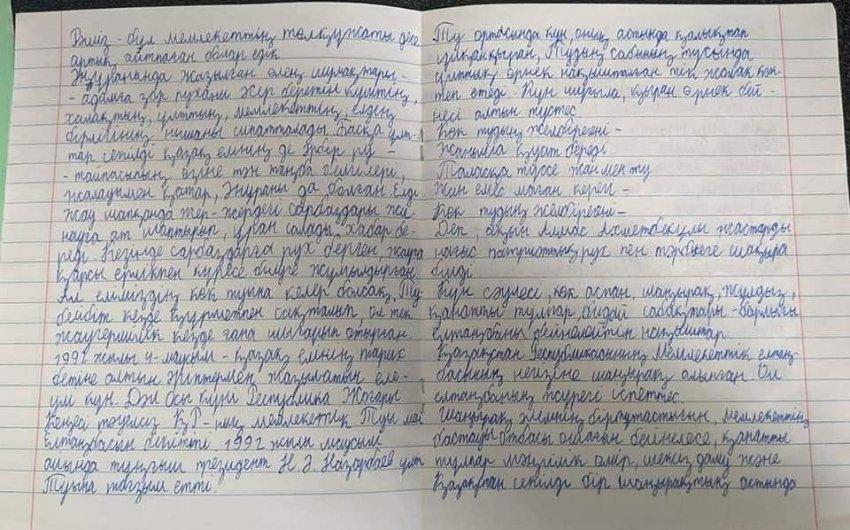 Біліз - бұл мемлекеттің төлқұжаты десе
артық айтпаған болар едік.
Әнұрананда жазылған өлең шумақтары -
- адамға зор рухани жігер беретін күштің,
халақтың, ұлттың, мемлекеттің, елдің
бірлігінің нышаны сипатталады. Басқа ұлт-
тар секілді қазақ елінің де әрбір ру -
- тайпасының өзіне тән таңба белгілері,
жалауымен қатар, Әнұраны да болған. Елді
жау шапқанда жер-жердегі сарбаздары жи-
науға ат шаптырып, ұран салады, хабар бе-
реді. Кезінде сарбаздарға рух берген, жауға
қарсы ерлікпен күресе білуге жұмылдырған.
Ал еліміздің көк туына келер болсақ, Ту
бейбіт кезде құрметпен сақталып, ол тек
жаугершілік кезде ғана шығарып отырған.
1992 жылы 4-маусым - қазақ елінің тарих
бетіне алтын әріптермен жазылатын еле-
улі күн. Дәл осы күні Республика Жоғарғы
Кеңесі тәуелсіз ҚР-ның мемлекеттік Туы мен
Елтаңбасын бекітті. 1992 жылы маусым
айында тұңғыш президент Н. Ә. Назарбаев ұлт
Туына тағзым етті.
Ту ортасында күн, оның астында қалықтап
ұшқан қыран, Тудың сабының тұсында
ұлттық өрнек нақышталған тік жолақ көк-
тен өтеді. Күн шұғыла, қыран өрнек бей-
несі алтын түстес
Көк тудың желбірегені -
Жаныма қуат береді.
Таласқа түссе жан мен ту
Жан емес маған керегі -
Көк тудың желбірегені -
Деп, ақын Алмас Ахметбекұлы жастарды
нағыз патриоттық рух пен тәрбиеге шақыра
білді
Күн сәулесі, көк аспан, шаңырақ, жұлдыз,
қанатты тұлпар бидай сабақтары - барлығы
құтаңбаны бейнелейтін нақыштар.
Қазақстан Республикасының мемлекеттік елтаң-
басының негізіне шаңырақ алынған. Ол
елтаңбаның жүрегі іспеттес.
Шаңырақ әлемнің біртұтастығын, мемлекеттің
бастауы отбасы екенін бейнелесе, қанатты
тұлпар мәңгілік өмір, шексіз даму және
Қазақстан секілді бір шаңырақтың астында